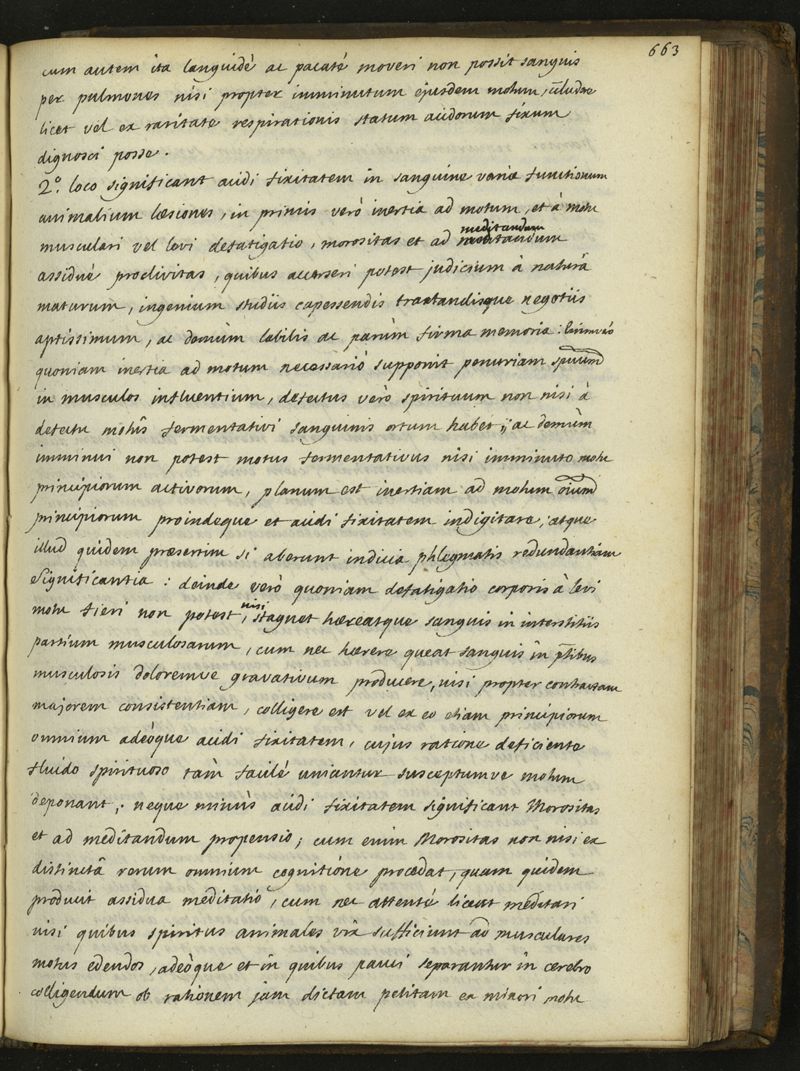 663
cum autem ita languidè ac pacatè moveri non possit sanguis
per pulmones nisi propter imminutum ejusdem motum, 
licet vel ex raritate respirationis statum acidorum fixum
dignosci posse.
2.º loco significant acidi fixitatem in sanguine variæ functionum
animalium læsiones, in primis verò inertia ad motum, et à motu
musculari vel levi defatigatio, morositas et ad meditandum
assiduè proclivitas, quibus accerseri potest judicium à naturâ
maturum, ingenium studiis capessendis tractandisque negotiis
aptissimum, ac demùm labilis ac parùm firma memoria:
quoniam inertia ad motum necessariò supponit penuriam spirituum
in musculos influentium, defectus verò spirituum non nisi à
defectu motûs fermentativi sanguinis ortum habet; ac demùm
imminui non potest motus fermentativus nisi imminuto motu
principiorum activorum, planum est inertiam ad motum
principiorum proindeque et acidi fixitatem indigitare, atque
illud quidem præsertim si aberunt indicia phlegmatis redundantiam
significantia: deinde verò quoniam defatigatio corporis à levi
motu fieri non potest, nisi stagnet hæreatque sanguis in interstitiis
partium musculosarum, cum nec hærere queat sanguis in ptibus
musculosis doloremve gravativum producere, nisi propter contractam
majorem consistentiam, colligere est vel ex eo etiam principiorum
omnium adeòque acidi fixitatem, cujus ratione deficiente
fluido spirituoso tàm facilè uniantur susceptumve motum
deponant; neque minùs acidi fixitatem significant Morositas
et ad meditandum propensio; cum enim Morositas non nisi ex
distinctâ rerum omnium cognitione procedat, quam quidem
producit assidua meditatio, cum nec attentè liceat meditari
nisi quibus spiritus animales vix sufficiunt ad musculares
motus edendos, adeòque et in quibus pauci separantur in cerebro
colligendum ob rationem jam dictam petitam ex minori motu